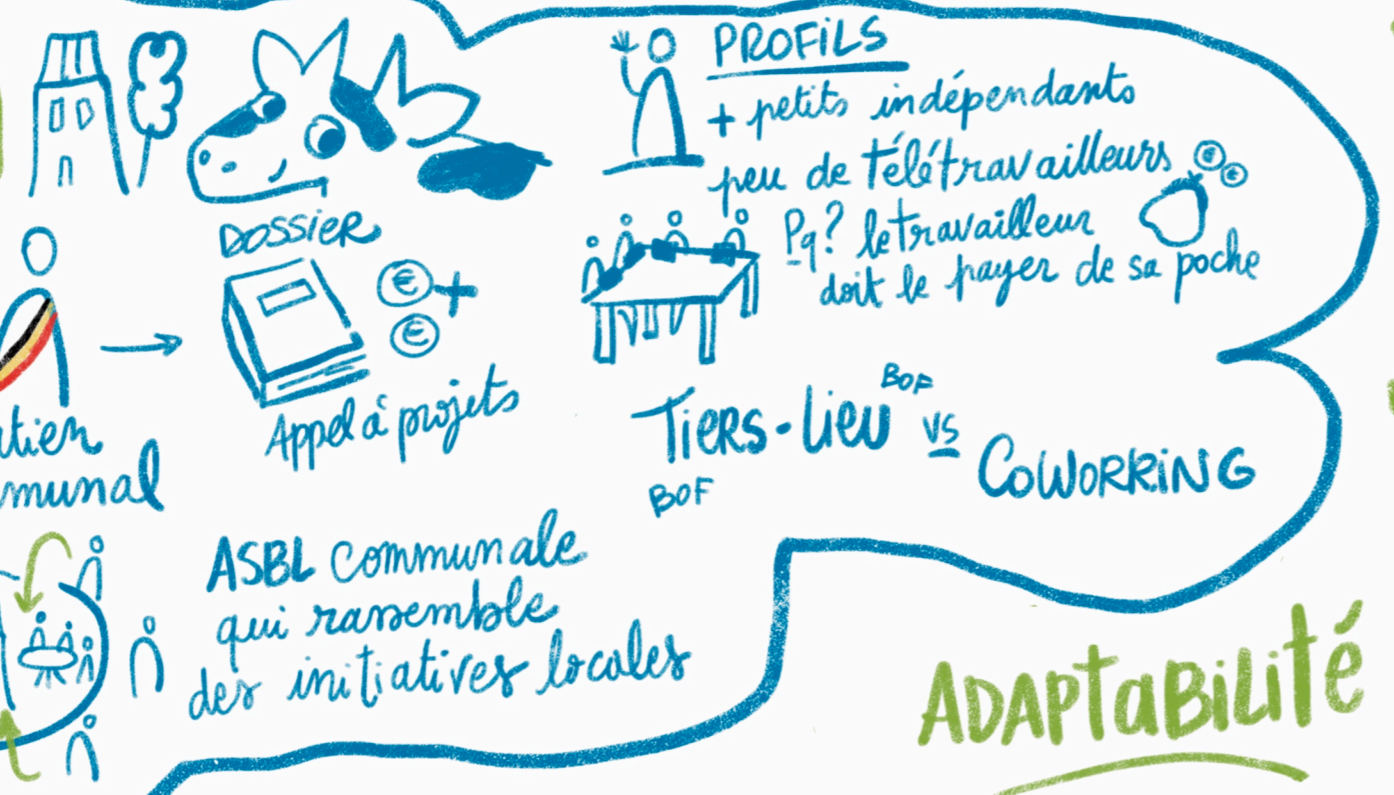 PROFILS
+ petits indépendants
peu de télétravailleurs
€ €
Pq? le travailleur
doit le payer de sa poche
DOSSIER
€ +
€
Appel à projets
BOF
TIERS-LIEU VS
COWORKING
BOF
ASBL communale
qui rassemble
des initiatives locales
ADAPTABILITÉ